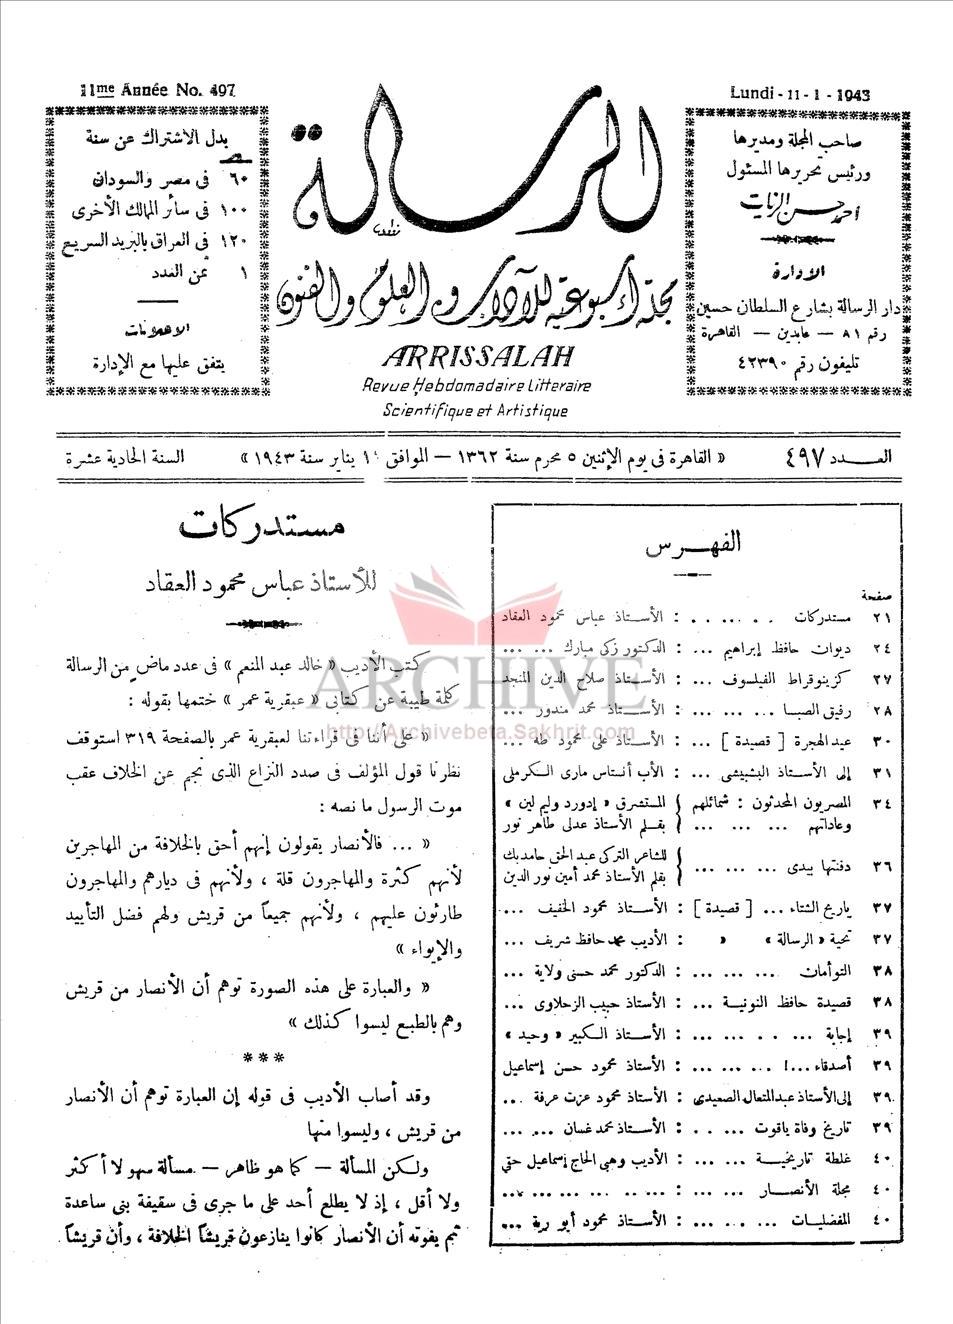 11me Année No. 497
Lundi - 11 - 1 - 1943
صاحب المجلة ومديرها
ورئيس تحريرها المسئول
أحمد حسن الزيات
الادارة
دار الرسالة بشارع السلطان حسين
رقم ٨١ — عابدين — القاهرة
تليفون رقم ٤٢٣٩٠
الرسالة
مجلة أسبوعية للآداب والعلوم والفنون
ARRISSALAH
Revue Hebdomadaire Litteraire
Scientifique et Artistique
بدل الاشتراك عن سنة
٦٠ فى مصر والسودان
١٠٠ فى سائر الممالك الأخرى
١٢٠ فى العراق بالبريد السريع
١ ثمن العدد
الاعلانات
يتفق عليها مع الإدارة
العـــدد ٤٩٧
« القاهرة فى يوم الإثنين ٥ محرم سنة ١٣٦٢ — الموافق ١١ يناير سنة ١٩٤٣ »
السنة الحادية عشرة
الفهـرس
صفحة
٢١ مستدركات ... ... : الأستاذ عباس محمود العقاد
٢٤ ديوان حافظ إبراهيم ... : الدكتور زكى مبارك ... ...
٢٧ كزينوقراط الفيلسوف ... : الأستاذ صلاح الدين المنجد
٢٨ رفيق الصبا ... ... ... : الأستاذ محمد مندور ...
٣٠ عيد الهجرة [ قصيدة ] ... : الأستاذ على محمود طه ...
٣١ إلى الأستاذ البشبيشى ... : الأب أنستاس مارى الكرملى
٣٤ المصريون المحدثون : شمائلهم وعاداتهم ... ... ... { المستشرق « إدورد وليم لين »
بقـلم الأستاذ عدلى طاهر نور
٣٦ دفنتها بيدى ... ... ... { للشاعر التركى عبد الحق حامد بك
بقلم الأستاذ محمد أمين نور الدين
٣٧ ياريح الشتاء ... [ قصيدة ] : الأستاذ محمود الخفيف ...
٣٧ تحية « الرسالة » » : الأديب محمد حافظ شريف ...
٣٨ التوأمان ... ... ... : الدكتور محمد حسنى ولاية ...
٣٨ قصيدة حافظ النونية ... : الأستاذ حبيب الزحلاوى ...
٣٩ إجابة ... ... ... : الأستاذ الكبير « وحيد »
٣٩ أصدقاء ...! ... ... : الأستاذ محمود حسن إسماعيل
٣٩ إلى الأستاذ عبد المتعال الصعيدى : الأستاذ محمود عزت عرفة ...
٣٩ تاريخ وفاة ياقوت ... ... : الأستاذ محمد غسان ... ...
٤٠ غلطة تاريخية ... ... : الأديب وهبى الحاج إسماعيل حقى
٤٠ مجلة الأنصـار ... ... : ... ... ... ...
٤٠ المفضليات ... ... ... : الأستاذ محمود أبو رية ...
مستدركات
للأستاذ عباس محمود العقاد
كتب الأديب « خالد عبد المنعم » فى عدد ماض من الرسالة
كلمة طيبة عن كتابى « عبقرية عمر » ختمها بقوله :
« على أننا فى قراءتنا لعبقرية عمر بالصفحة ٣١٩ استوقف
نظرنا قول المؤلف فى صدد النزاع الذى نجم عن الخلاف عقب
موت الرسول ما نصه :
« ... فالأنصار يقولون إنهم أحق بالخلافة من المهاجرين
لأنهم كثرة والمهاجرون قلة ، ولأنهم فى ديارهم والمهاجرون
طارئون عليهم ، ولأنهم جميعاً من قريش ولهم فضل التأييد
والإيواء »
« والعبارة على هذه الصورة توهم أن الأنصار من قريش
وهم بالطبع ليسوا كذلك »
***
وقد أصاب الأديب فى قوله إن العبارة توهم أن الأنصار
من قريش ، وليسوا منها
ولكن المسألة — كما هو ظاهر — مسألة سهو لا أكثر
ولا أقل ، إذ لا يطلع أحد على ما جرى فى سقيفة بنى ساعدة
ثم يفوته أن الأنصار كانوا ينازعون قريشاً الخلافة ، وأن قريشاً
ARCHIVE
http://Archivebeta.Sakhrit.com